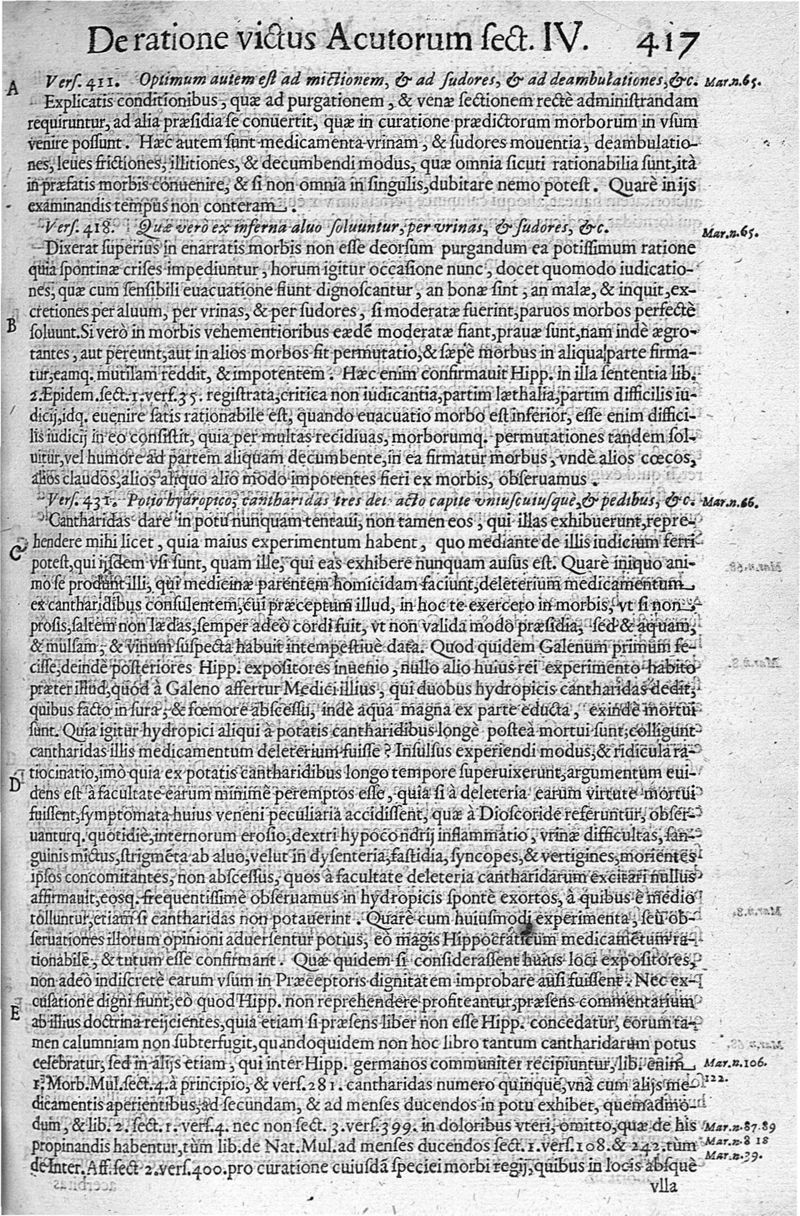 De ratione victus Acutorum sect. IV. 417
A Vers. 411. Optimum autem est ad mictionem, & ad sudores, & ad deambulationes, &c. Mar.n.65.
Explicatis conditionibus, quæ ad purgationem, & venæ sectionem rectè administrandam
requiruntur, ad alia præsidia se conuertit, quæ in curatione prædictorum morborum in vsum
venire possunt. Hæc autem sunt medicamenta vrinam, & sudores mouentia, deambulatio-
nes, leues frictiones, illitiones, & decumbendi modus, quæ omnia sicuti rationabilia sunt, ità
in præfatis morbis conuenire, & si non omnia in singulis, dubitare nemo potest. Quarè in ijs
examinandis tempus non conteram.
Vers. 418. Quæ verò ex inferna aluo soluuntur, per vrinas, & sudores, &c. Mar.n.65.
Dixerat superius in enarratis morbis non esse deorsum purgandum ea potissimum ratione
quia spontinæ crises impediuntur, horum igitur occasione nunc, docet quomodo iudicatio-
nes, quæ cum sensibili euacuatione fiunt dignoscantur, an bonæ sint, an malæ, & inquit, ex-
cretiones per aluum, per vrinas, & per sudores, si moderatæ fuerint, paruos morbos perfectè
B soluunt. Si verò in morbis vehementioribus eædē moderatæ fiant, prauæ sunt, nam indè ægro-
tantes, aut pereunt, aut in alios morbos fit permutatio, & sæpè morbus in aliqua parte firma-
tur, eamq. mutilam reddit, & impotentem. Hæc enim confirmauit Hipp. in illa sententia lib.
2. Epidem. sect. 1. vers. 35. registrata, critica non iudicantia, partim læthalia, partim difficilis iu-
dicij, idq. euenire satis rationabile est, quando euacuatio morbo est inferior, esse enim diffici-
lis iudicij in eo consistit, quia per multas recidiuas, morborumq. permutationes tandem sol-
uitur, vel humore ad partem aliquam decumbente, in ea firmatur morbus, vndè alios cœcos,
alios claudos, alios aliquo alio modo impotentes fieri ex morbis, obseruamus.
Vers. 431. Potio hydropico; cantharidas tres dei acto capite vniuscuiusquè, & pedibus, &c. Mar.n.66.
Cantharidas dare in potu nunquam tentaui, non tamen eos, qui illas exhibuerunt, repre-
C hendere mihi licet, quia maius experimentum habent, quo mediante de illis iudicium ferri
potest, qui ijsdem vsi sunt, quam ille, qui eas exhibere nunquam ausus est. Quarè iniquo ani-
mo se produnt illi, qui medicinæ parentem homicidam faciunt, deleterium medicamentum
ex cantharidibus consulentem, cui præceptum illud, in hoc te exerceto in morbis, vt si non
prosis, saltem non lædas, semper adeò cordi fuit, vt non valida modo præsidia, sed & aquam,
& mulsam, & vinum suspecta habuit intempestiuè data. Quod quidem Galenum primum fe-
cisse, deindè posteriores Hipp. expositores inuenio, nullo alio huius rei experimento habito
præter illud, quòd à Galeno affertur Medici illius, qui duobus hydropicis cantharidas dedit,
quibus facto in sura, & fœmore abscessu, indè aqua magna ex parte educta, exindè mortui
sunt. Quia igitur hydropici aliqui à potatis cantharidibus longè posteà mortui sunt, colligunt
cantharidas illis medicamentum deleterium fuisse? Insulsus experiendi modus, & ridicula ra-
D tiocinatio, imò quia ex potatis cantharidibus longo tempore superuixerunt, argumentum eui-
dens est à facultate earum minimè peremptos esse, quia si à deleteria earum virtute mortui
fuissent, symptomata huius veneni peculiaria accidissent, quæ à Dioscoride referuntur, obser-
uanturq. quotidiè, internorum erosio, dextri hypocondrij inflammatio, vrinæ difficultas, san-
guinis mictus, strigmēta ab aluo, velut in dysenteria, fastidia, syncopes, & vertigines, morientes
ipsos concomitantes, non abscessus, quos à facultate deleteria cantharidarum excitari nullus
affirmauit, eosq. frequentissimè obseruamus in hydropicis spontè exortos, à quibus è medio
tolluntur, etiam si cantharidas non potauerint. Quarè cum huiusmodi experimenta, seu ob-
seruationes illorum opinioni aduersentur potius, eò magis Hippocraticum medicamētum ra-
tionabilè, & tutum esse confirmant. Quæ quidem si considerassent huius loci expositores,
non adeò indiscretè earum vsum in Præceptoris dignitatem improbare ausi fuissent. Nec ex-
E cusatione digni fiunt, eò quod Hipp. non reprehendere profiteantur, præsens commentarium
ab illius doctrina reijcientes, quia etiam si præsens liber non esse Hipp. concedatur, eorum ta-
men calumniam non subterfugit, quandoquidem non hoc libro tantum cantharidarum potus
celebratur, sed in alijs etiam, qui inter Hipp. germanos communiter recipiuntur, lib. enim Mar.n.106.
1. Morb. Mul. sect. 4. à principio, & vers. 281. cantharidas numero quinque, vnà cum alijs me- 122.
dicamentis aperientibus, ad secundam, & ad menses ducendos in potu exhibet, quemadmo-
dum, & lib. 2. sect. 1. vers. 4. nec non sect. 3. vers. 399. in doloribus vteri, omitto, quæ de his Mar.n.87.89
propinandis habentur, tùm lib. de Nat. Mul. ad menses ducendos sect. 1. vers. 108. & 242. tùm Mar.n.8 18
de Inter. Aff. sect 2. vers. 400. pro curatione cuiusdā speciei morbi regij, quibus in locis absquè Mar.n.39.
vlla